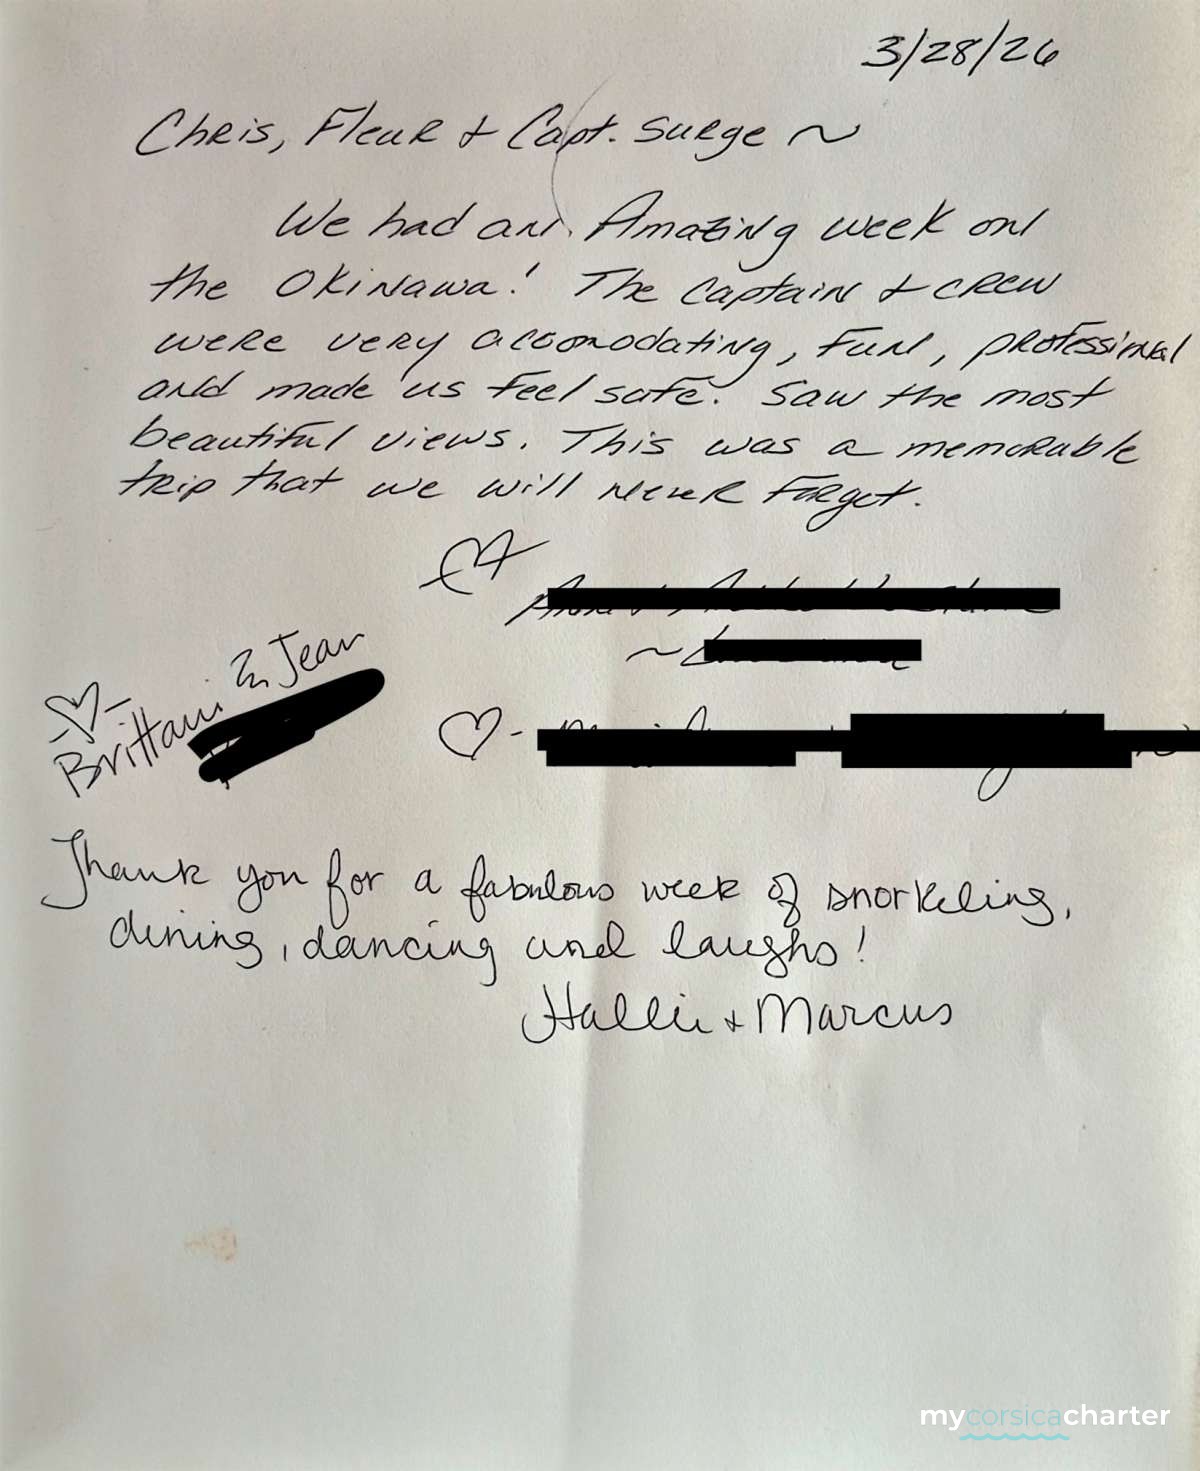 3/28/26
Chris, Fleur & Capt. Surge ~
We had an Amazing week on
the Okinawa! The Captain & crew
were very accomodating, fun, professional
and made us feel safe. Saw the most
beautiful views. This was a memorable
trip that we will never forget.
Brittani & Jean
Thank you for a fabulous week of snorkeling,
dining, dancing and laughs!
Hallie + Marcus
mycorsicacharter